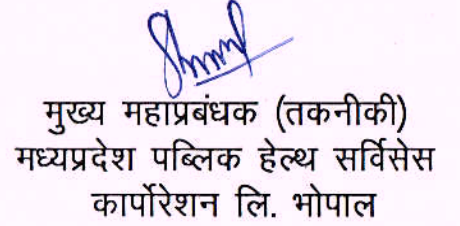 मुख्य महाप्रबंधक (तकनीकी)
मध्यप्रदेश पब्लिक हेल्थ सर्विसेस
कार्पोरेशन लि. भोपाल